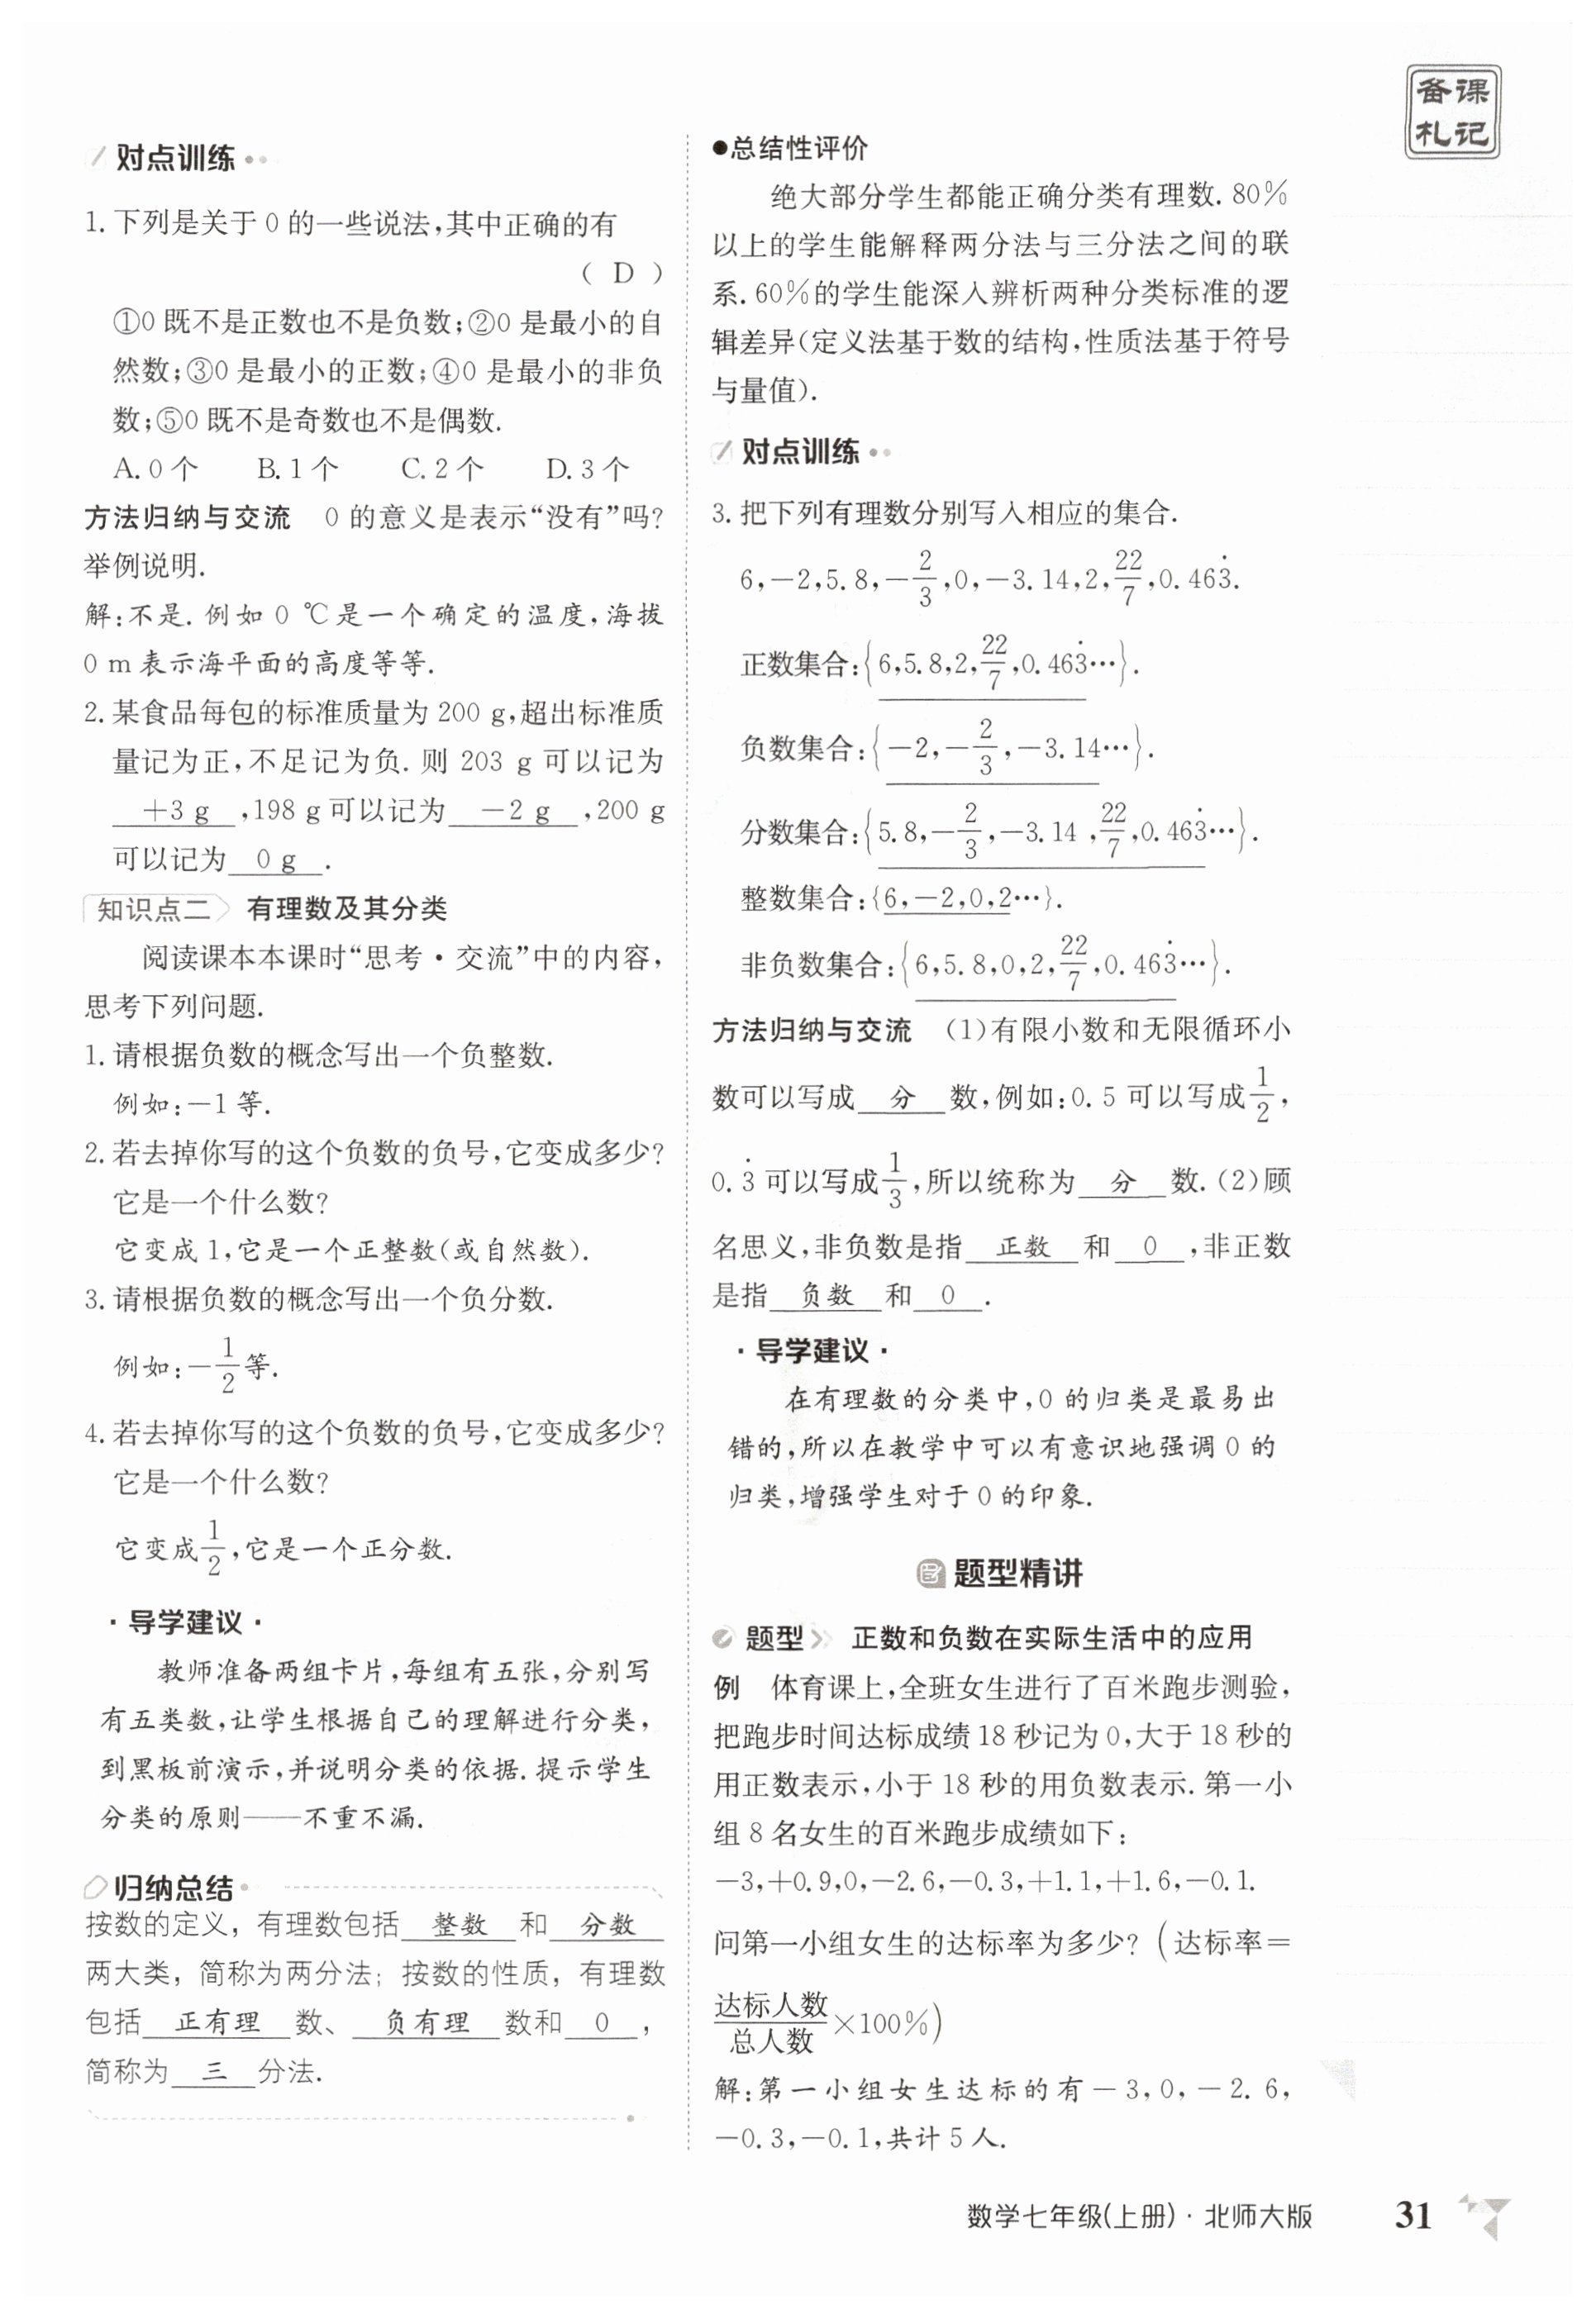 备课
札记
对点训练
1. 下列是关于 0 的一些说法,其中正确的有
( D )
①0 既不是正数也不是负数;②0 是最小的自
然数;③0 是最小的正数;④0 是最小的非负
数;⑤0 既不是奇数也不是偶数.
A. 0 个 B. 1 个 C. 2 个 D. 3 个
方法归纳与交流 0 的意义是表示“没有”吗?
举例说明.
解:不是. 例如 0 ℃是一个确定的温度,海拔
0 m 表示海平面的高度等等.
2. 某食品每包的标准质量为 200 g,超出标准质
量记为正,不足记为负. 则 203 g 可以记为
+3 g ,198 g 可以记为 -2 g ,200 g
可以记为 0 g .
知识点二 有理数及其分类
阅读课本本课时“思考·交流”中的内容,
思考下列问题.
1. 请根据负数的概念写出一个负整数.
例如:-1 等.
2. 若去掉你写的这个负数的负号,它变成多少?
它是一个什么数?
它变成 1,它是一个正整数(或自然数).
3. 请根据负数的概念写出一个负分数.
例如:-1/2等.
4. 若去掉你写的这个负数的负号,它变成多少?
它是一个什么数?
它变成1/2,它是一个正分数.
·导学建议·
教师准备两组卡片,每组有五张,分别写
有五类数,让学生根据自己的理解进行分类,
到黑板前演示,并说明分类的依据. 提示学生
分类的原则——不重不漏.
归纳总结
按数的定义，有理数包括 整数 和 分数
两大类，简称为两分法；按数的性质，有理数
包括 正有理 数、 负有理 数和 0 ，
简称为 三 分法.
●总结性评价
绝大部分学生都能正确分类有理数. 80%
以上的学生能解释两分法与三分法之间的联
系. 60%的学生能深入辨析两种分类标准的逻
辑差异(定义法基于数的结构,性质法基于符号
与量值).
对点训练
3. 把下列有理数分别写入相应的集合.
6,-2,5.8,-2/3,0,-3.14,2,22/7,0.463̇.
正数集合:{6,5.8,2,22/7,0.463̇…}.
负数集合:{-2,-2/3,-3.14…}.
分数集合:{5.8,-2/3,-3.14,22/7,0.463̇…}.
整数集合:{6,-2,0,2…}.
非负数集合:{6,5.8,0,2,22/7,0.463̇…}.
方法归纳与交流 (1)有限小数和无限循环小
数可以写成 分 数,例如:0.5 可以写成1/2,
0.3̇ 可以写成1/3,所以统称为 分 数. (2)顾
名思义,非负数是指 正数 和 0 ,非正数
是指 负数 和 0 .
·导学建议·
在有理数的分类中,0 的归类是最易出
错的,所以在教学中可以有意识地强调 0 的
归类,增强学生对于 0 的印象.
题型精讲
题型 正数和负数在实际生活中的应用
例 体育课上,全班女生进行了百米跑步测验,
把跑步时间达标成绩 18 秒记为 0,大于 18 秒的
用正数表示,小于 18 秒的用负数表示. 第一小
组 8 名女生的百米跑步成绩如下:
-3,+0.9,0,-2.6,-0.3,+1.1,+1.6,-0.1.
问第一小组女生的达标率为多少? (达标率=
达标人数/总人数×100%)
解:第一小组女生达标的有-3,0,-2.6,
-0.3,-0.1,共计 5 人.
数学七年级(上册)·北师大版 31